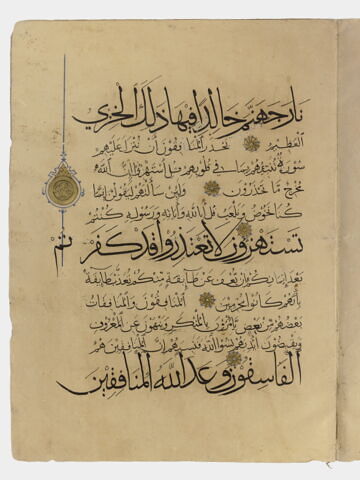 نار جهنم خالدا فيها ذلك الخزي
العظيم يحذر المنافقون أن تنزل عليهم
سورة تنبئهم بما في قلوبهم قل استهزؤا إن الله
مخرج ما تحذرون ولئن سألتهم ليقولن إنما
كنا نخوض ونلعب قل أبالله وآياته ورسوله كنتم
تستهزؤن لا تعتذروا قد كفرتم
بعد إيمانكم إن نعف عن طائفة منكم نعذب طائفة
بأنهم كانوا مجرمين المنافقون والمنافقات
بعضهم من بعض يأمرون بالمنكر وينهون عن المعروف
ويقبضون أيديهم نسوا الله فنسيهم إن المنافقين هم
الفاسقون وعد الله المنافقين